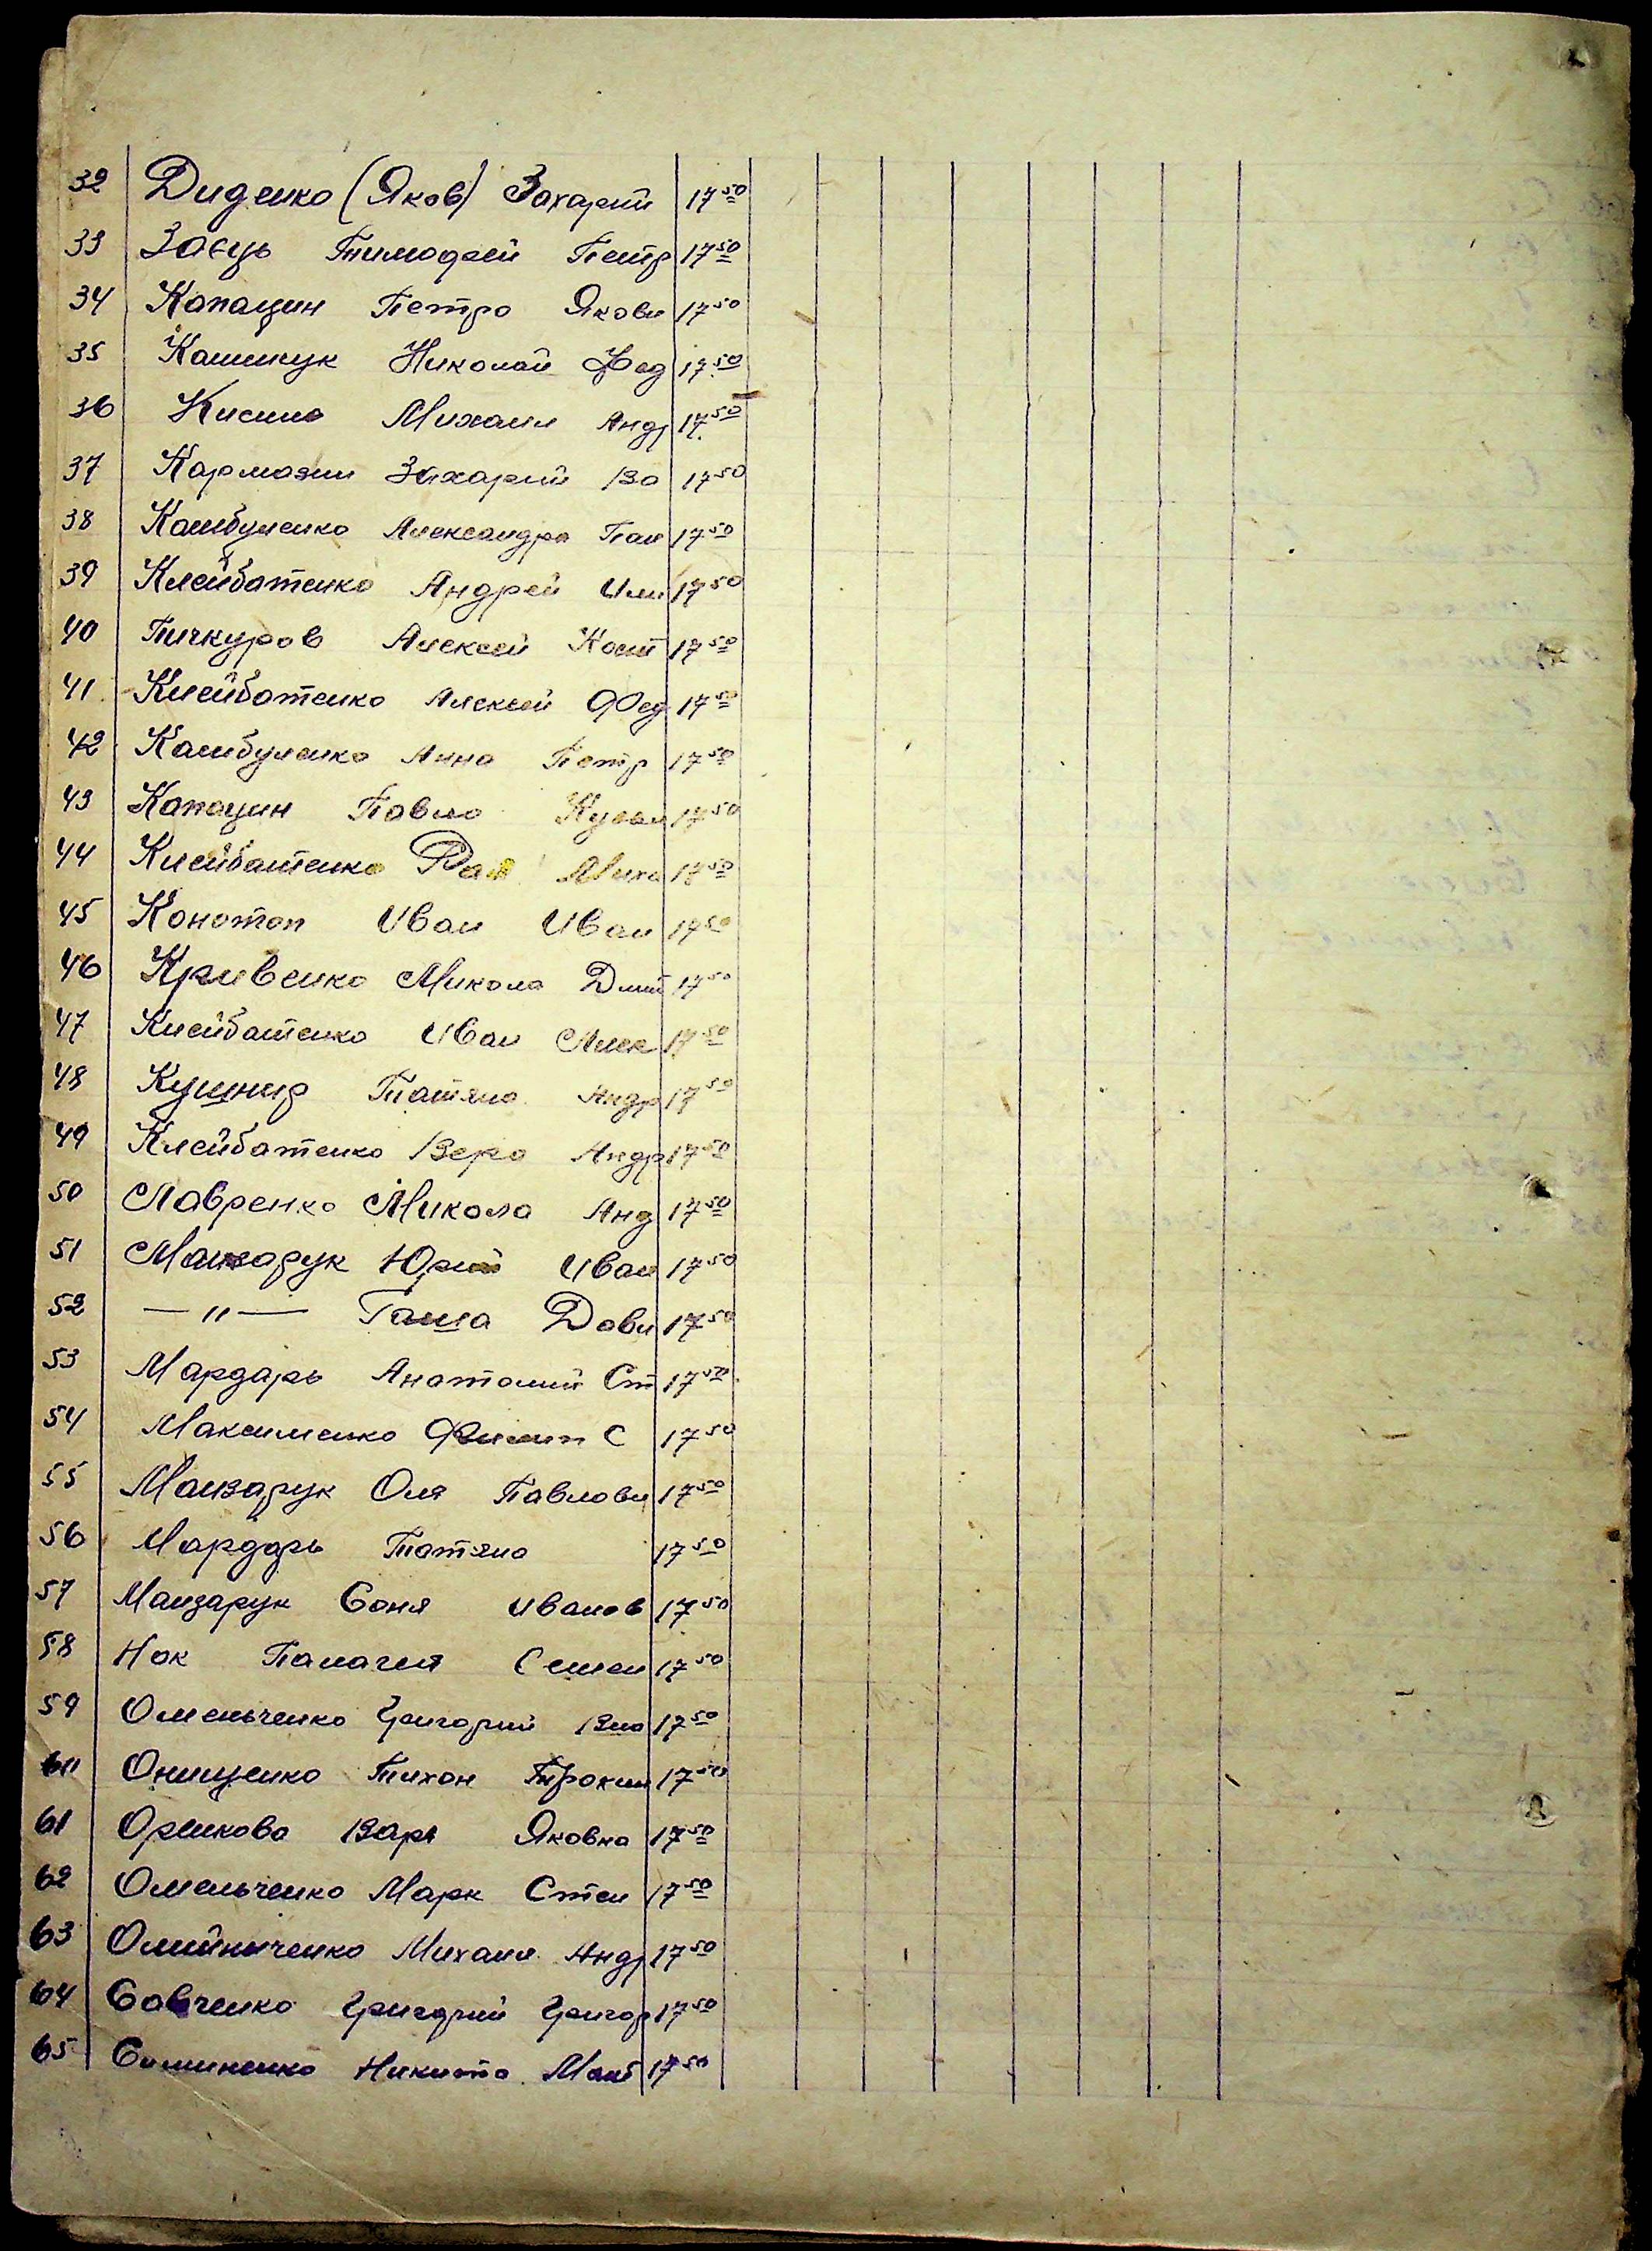 32 Диденко (Яков) Захарий 17 50
33 Заець Тимофей Петр 17 50
34 Капацин Петро Якови 17 50
35 Николай Фед 17 50
36 Михаил Андр 17 50
37 Кармазин Захарий Во 17 50
38 Камбуленко Александра Пан 17 50
39 Клейбатенко Андрей Или 17 50
40 Пичкуров Алексей Кост 17 50
41 Клейбатенко Алексей Фед 17 50
42 Камбуленко Анна Петр 17 50
43 Капацин Павло Кузьм 17 50
44 Клейбатенко Рая Миха 17 50
45 Конотоп Иван Иван 17 50
46 Кривенко Микола Дмит 17 50
47 Клейбатенко Иван Алек 17 50
48 Кушнир Татяна Андр 17 50
49 Клейбатенко Вера Андр 17 50
50 Лавренко Микола Анд 17 50
51 Манзарук Юрий Иван 17 50
52 —"— Гаша Дави 17 50
53 Мардарь Анатолий Ст 17 50
54 Максименко Филип С 17 50
55 Манзарук Оля Павлови 17 50
56 Мардарь Татяна 17 50
57 Манзарук Соня Иванов 17 50
58 Нок Палагея Семен 17 50
59 Омельченко Григорий Вла 17 50
60 Онищенко Тихон Трохим 17 50
61 Орликова Варя Яковна 17 50
62 Омельченко Марк Степ 17 50
63 Олийниченко Михаил Андр 17 50
64 Савченко Григорий Григор 17 50
65 Симиненко Никита 17 50